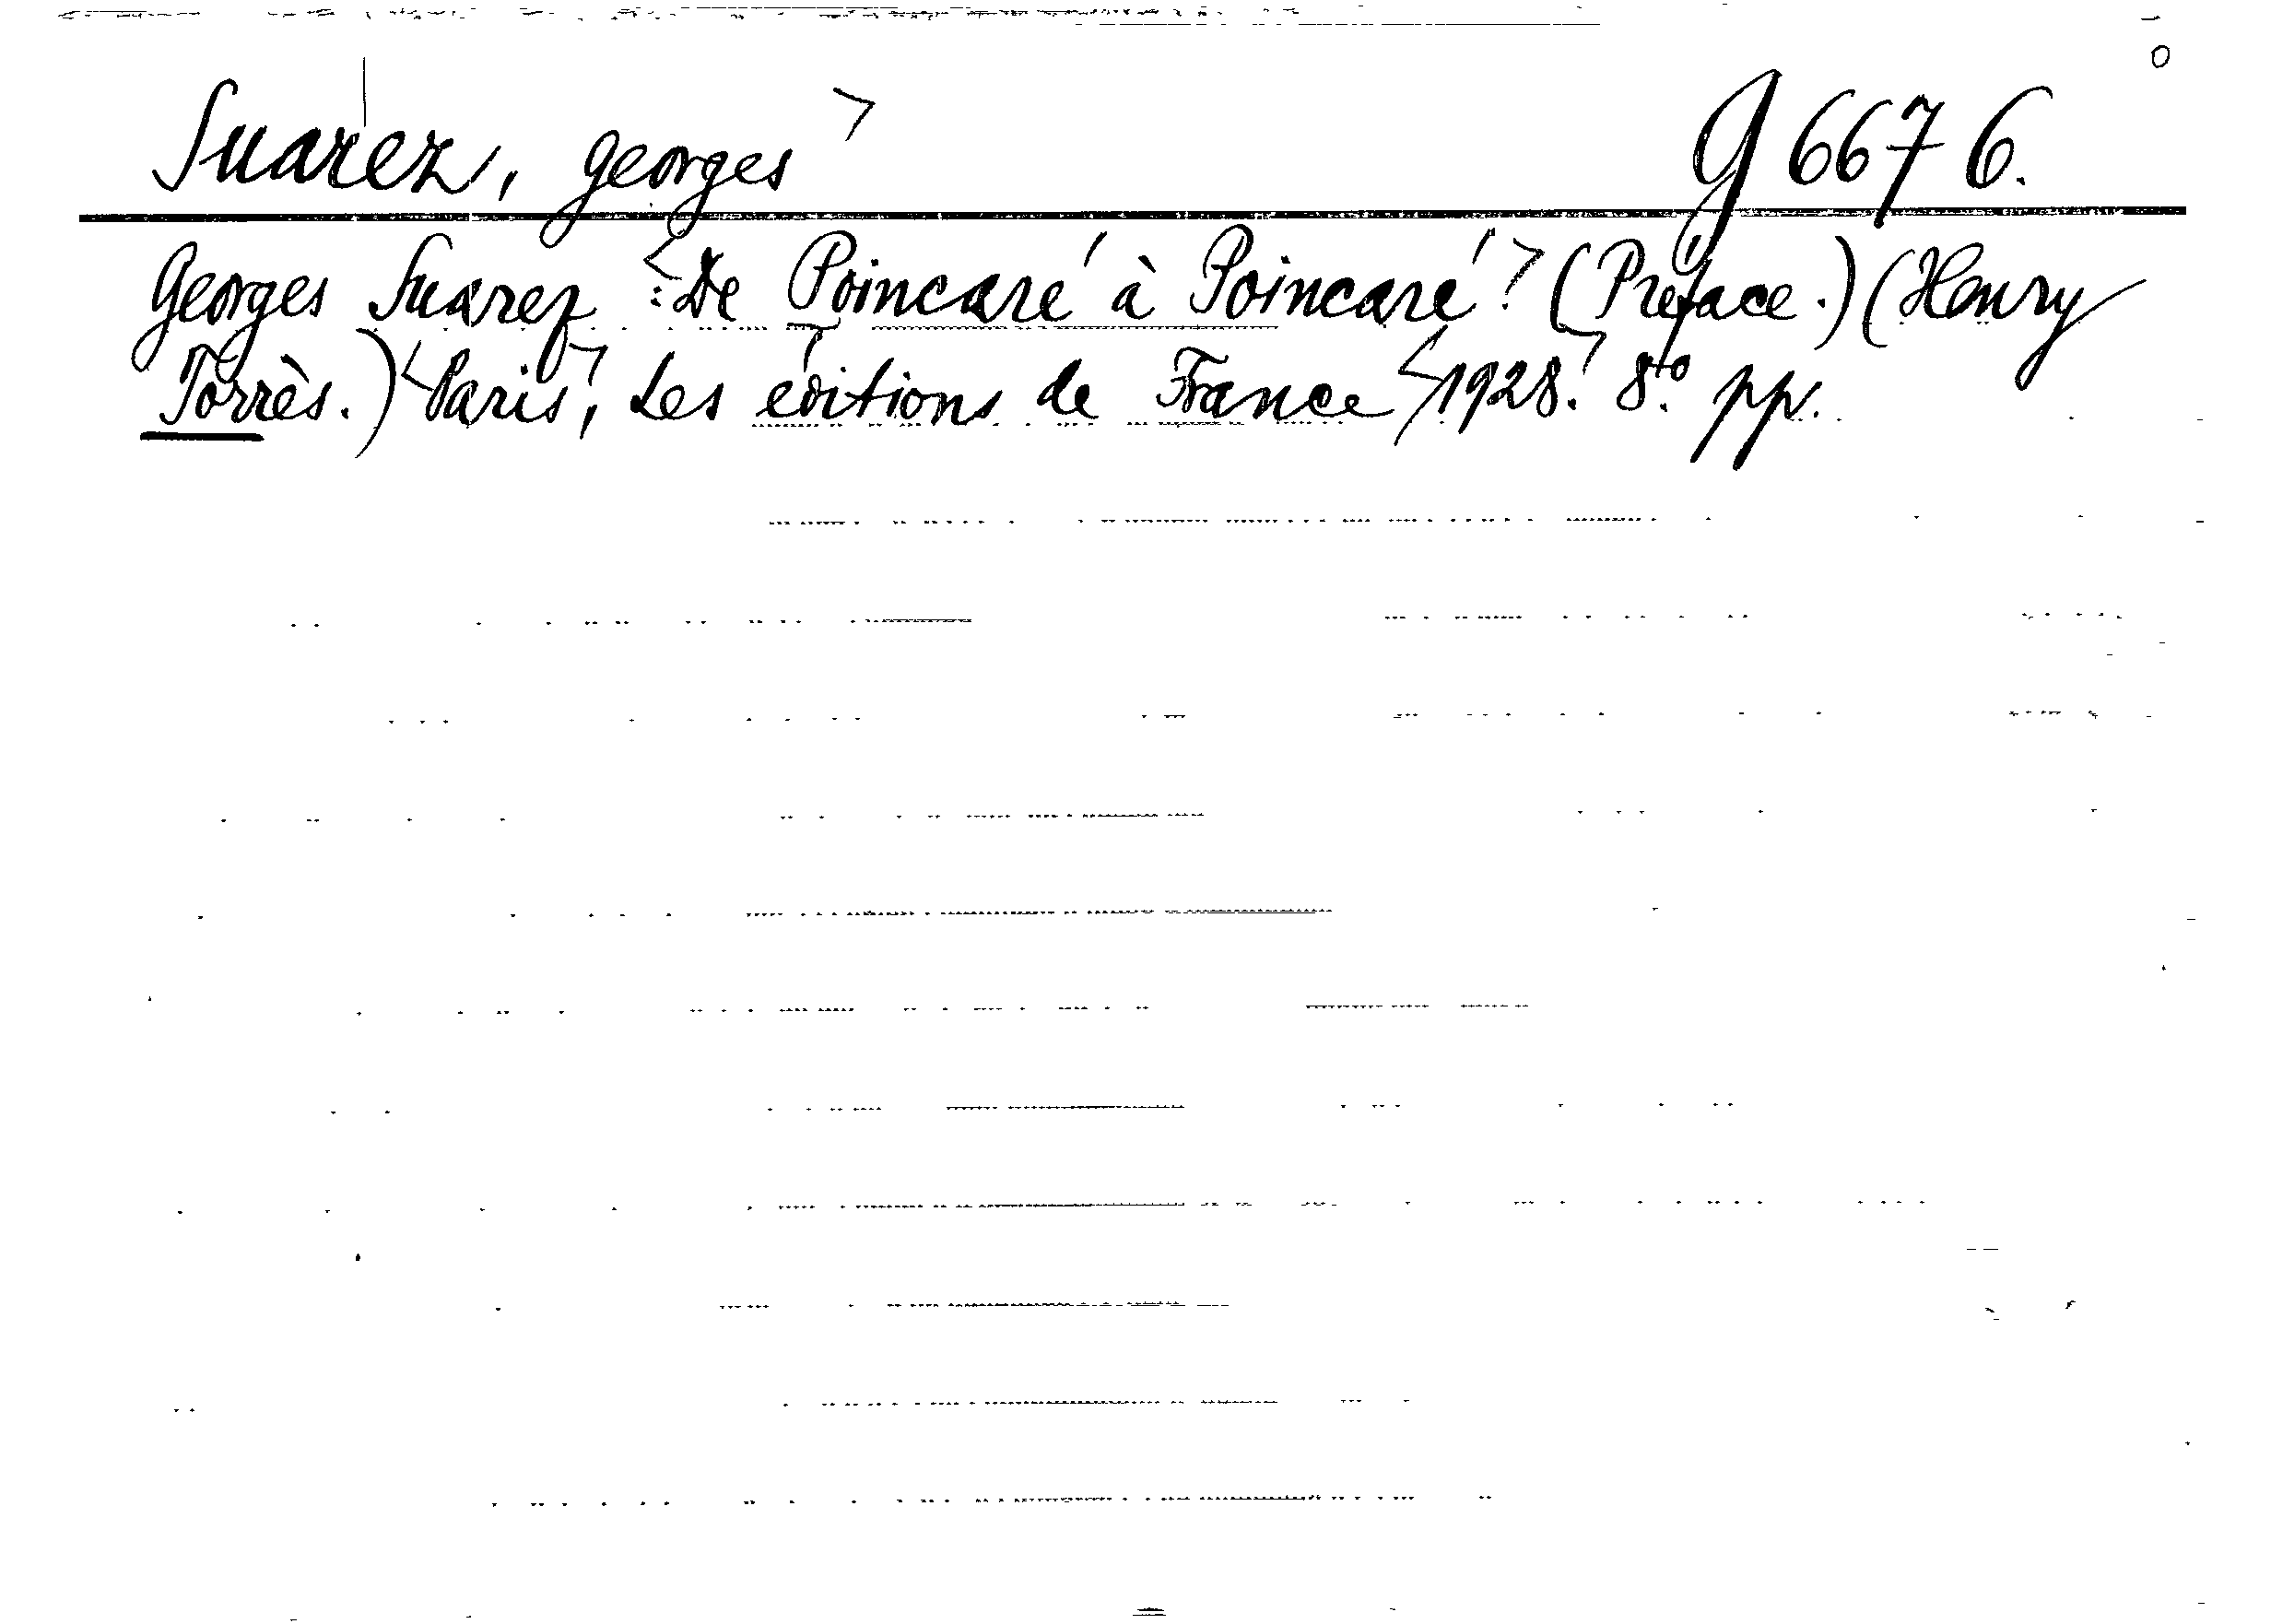 Suarez, Georges G 6676.
Georges Suarez : De Poincaré à Poincaré? (Préface.) (Henry
Torrès.) Paris, Les éditions de France 1928. 8to pp.